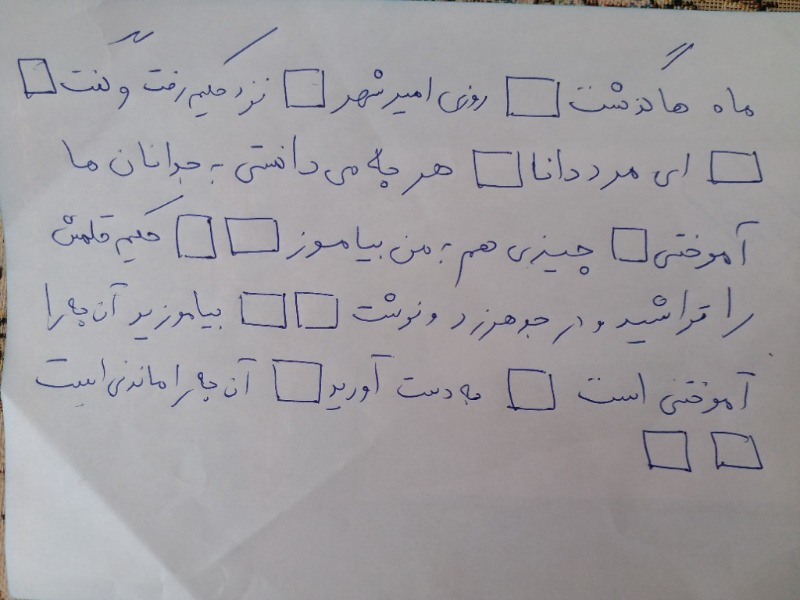 ماه ها گذشت □ روزی امیر شهر □ نزد حکیم رفت و گفت □
□ ای مرد دانا □ هر چه می دانستی به جوانان ما
آموختی □ چیزی هم به من بیاموز □ □ حکیم قلمش
را تراشید و در جوهر زد و نوشت □ □ بیاموزید آن چه را
آموختنی است □ به دست آورید □ آن چه را ماندنی است
□ □